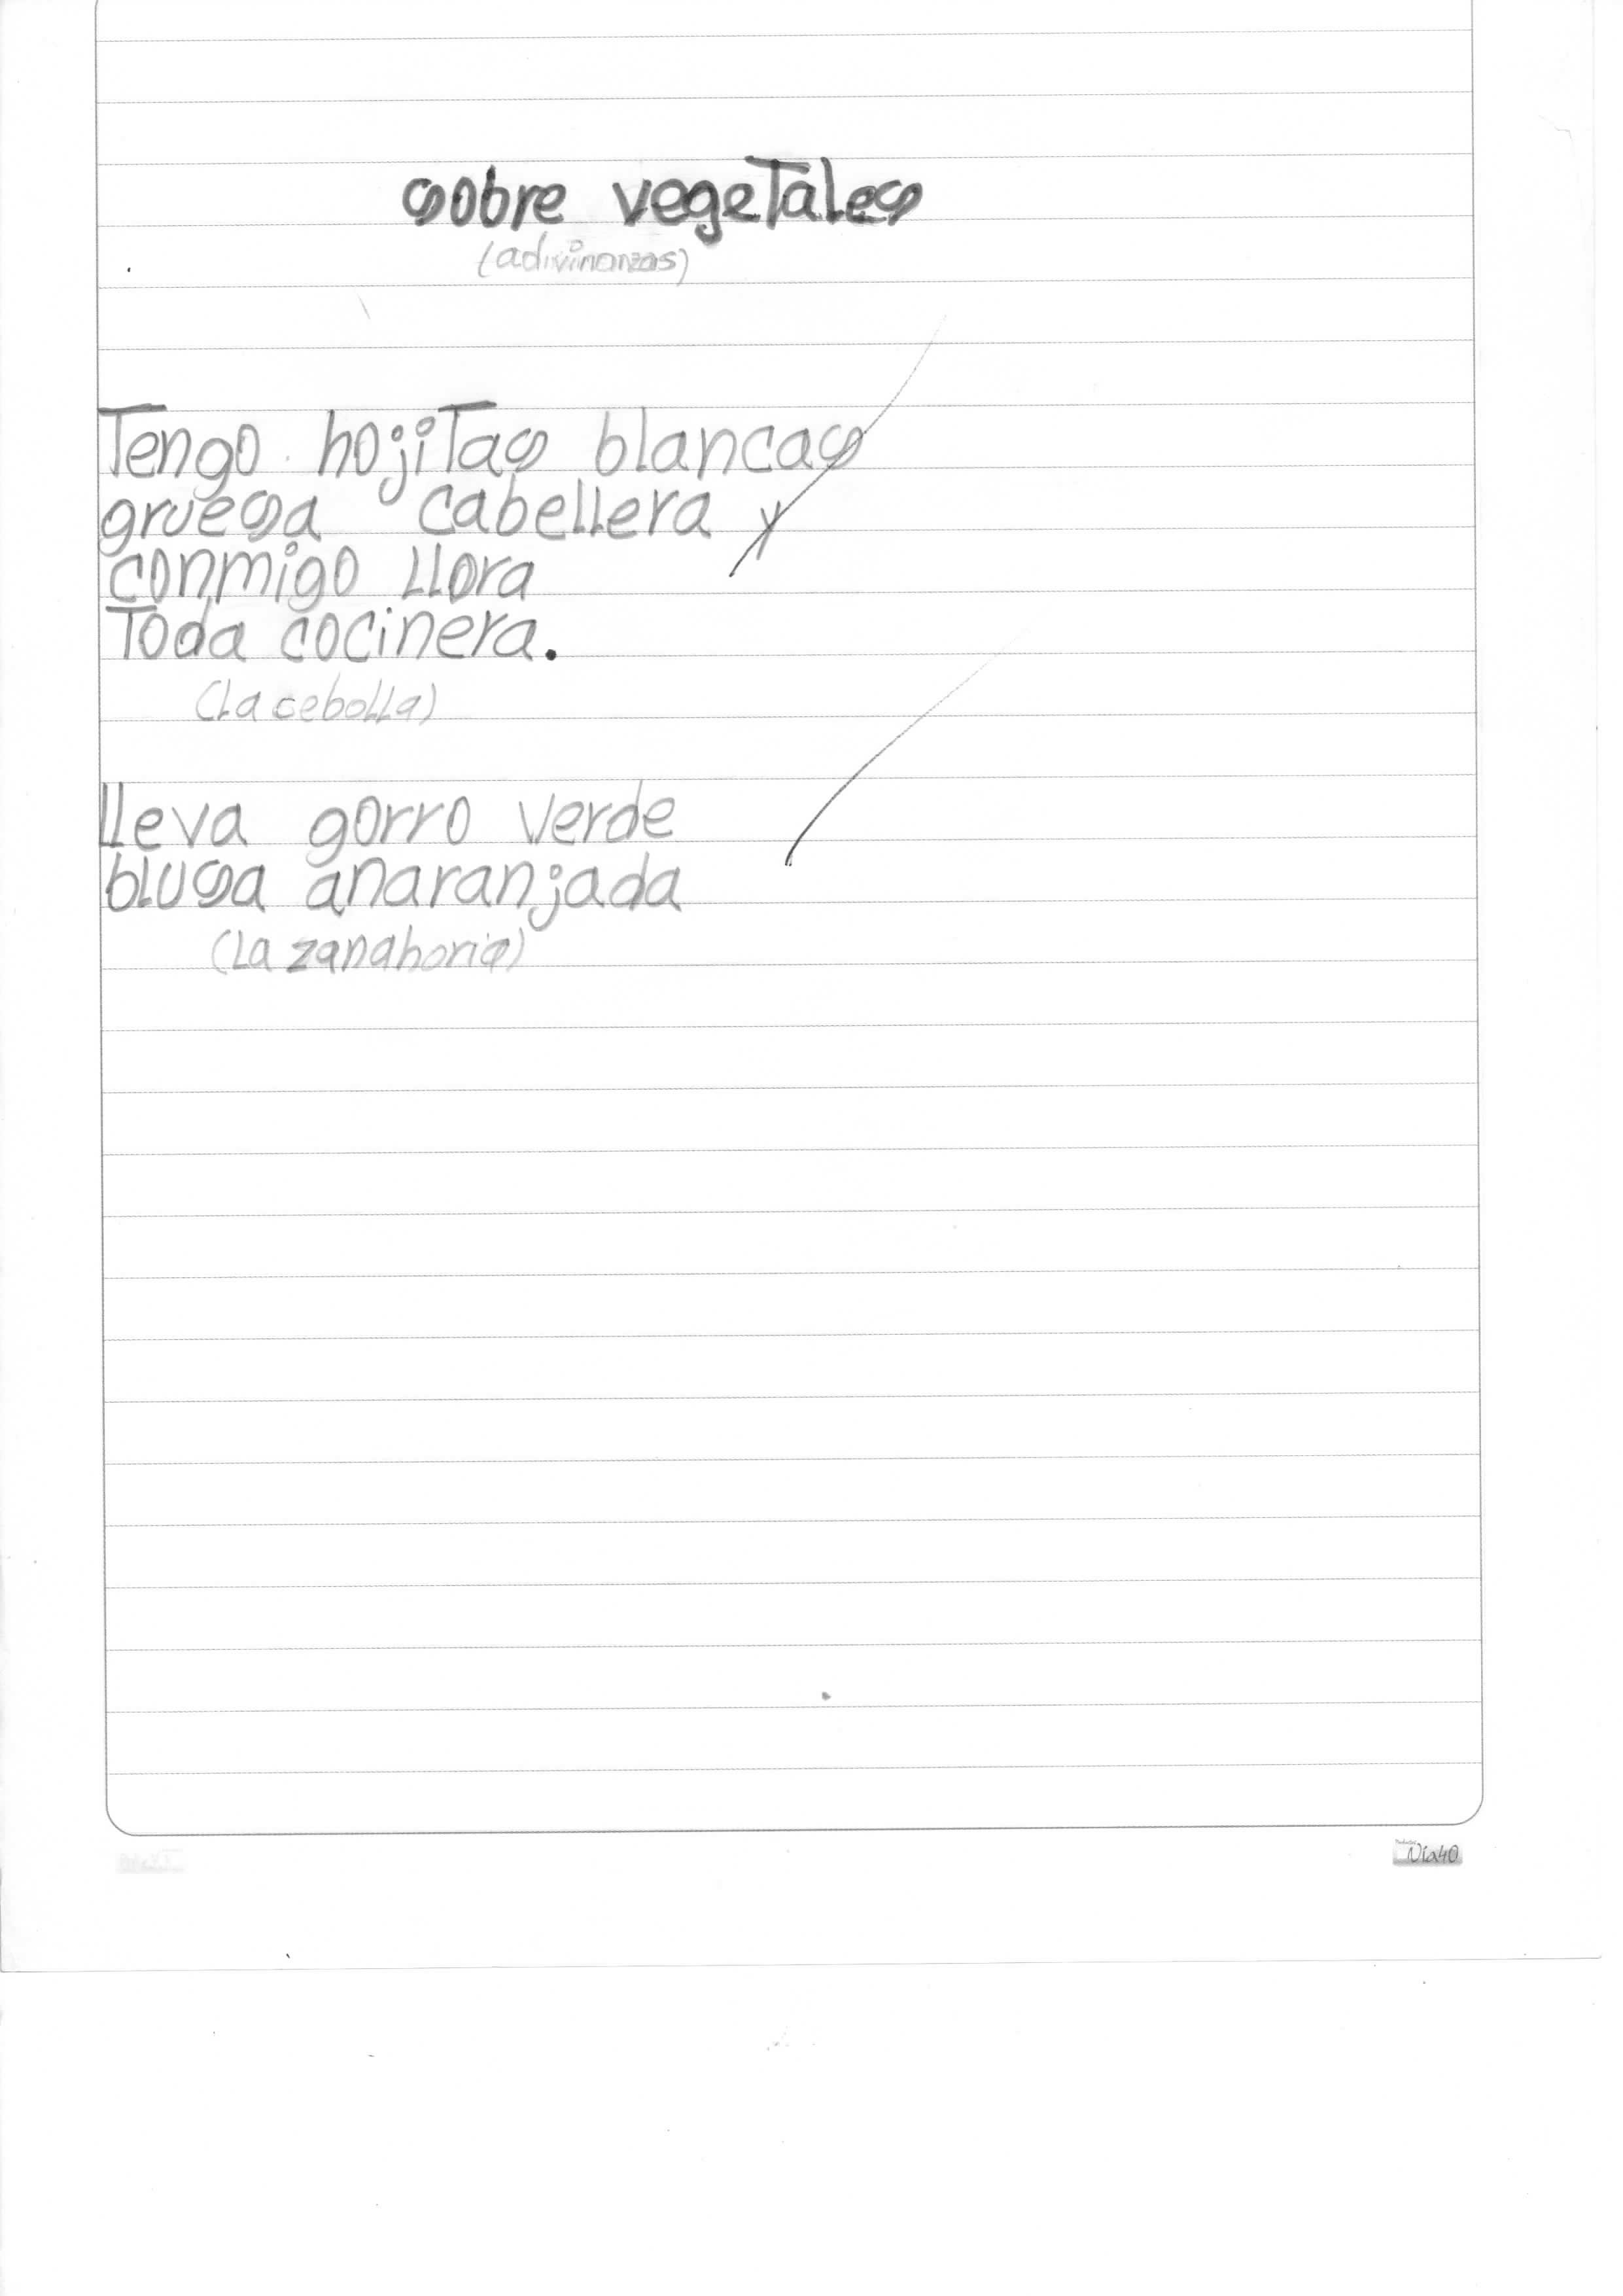 sobre vegeTales
(adivinanzas)
Tengo hojiTas blancas
gruesa cabellera y
conmigo llora
Toda cocinera.
(La cebolla)
lleva gorro verde
blusa anaranjada
(La zanahoria)
Vía40